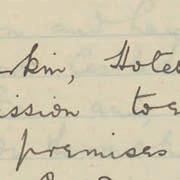 rkin, Hote
ission to
premises